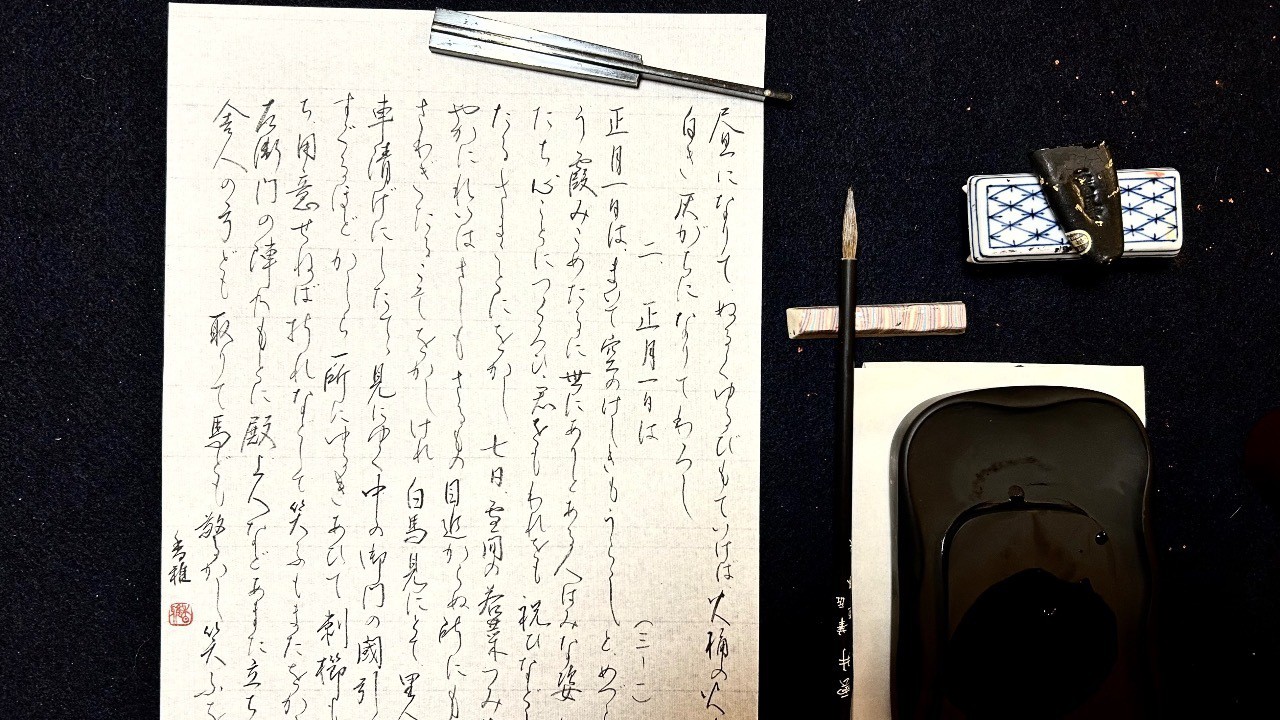 昼になりてぬるくゆるびもていけば火桶の火
白き灰がちになりてわろし
二 正月一日は
(三ー一)
正月一日はまいて空のけしきもうらうらとめづら
う霞みこめたるに世にありとある人はみな姿
たち心ことにつくろひ君をもわれをも祝ひなど
たるさまことにをかし 七日雪間の若菜つみ
やかにれいはさしもさるもの目近からぬ所にも
さわぎたるこそをかしけれ白馬見にとて里人
車清げにしたてて見にゆく中の御門の國引
すぐるほどかしら一所にゆるぎあひて刺櫛も
ち用意せねば折れなどして笑ふもまたをか
左衛門の陣のもとに殿上人などあまた立ち
舎人の弓ども取りて馬ども驚かし笑ふを
香雅